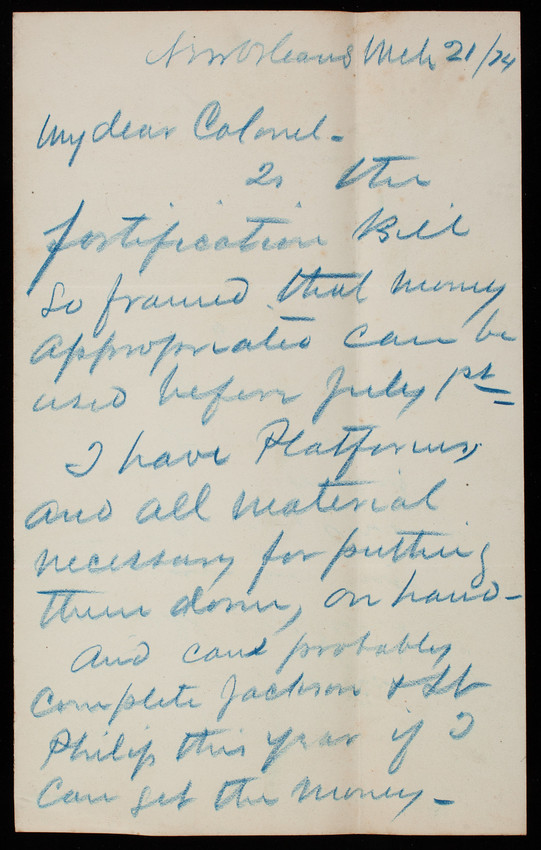 New Orleans Mch 21/74
My dear Colonel -
Is the
fortification Bill
so framed that money
appropriated can be
used before July 1st
I have Platforms,
and all material
necessary for putting
them down, on hand -
And can probably
complete Jackson & St
Philip this year if I
can get the money -